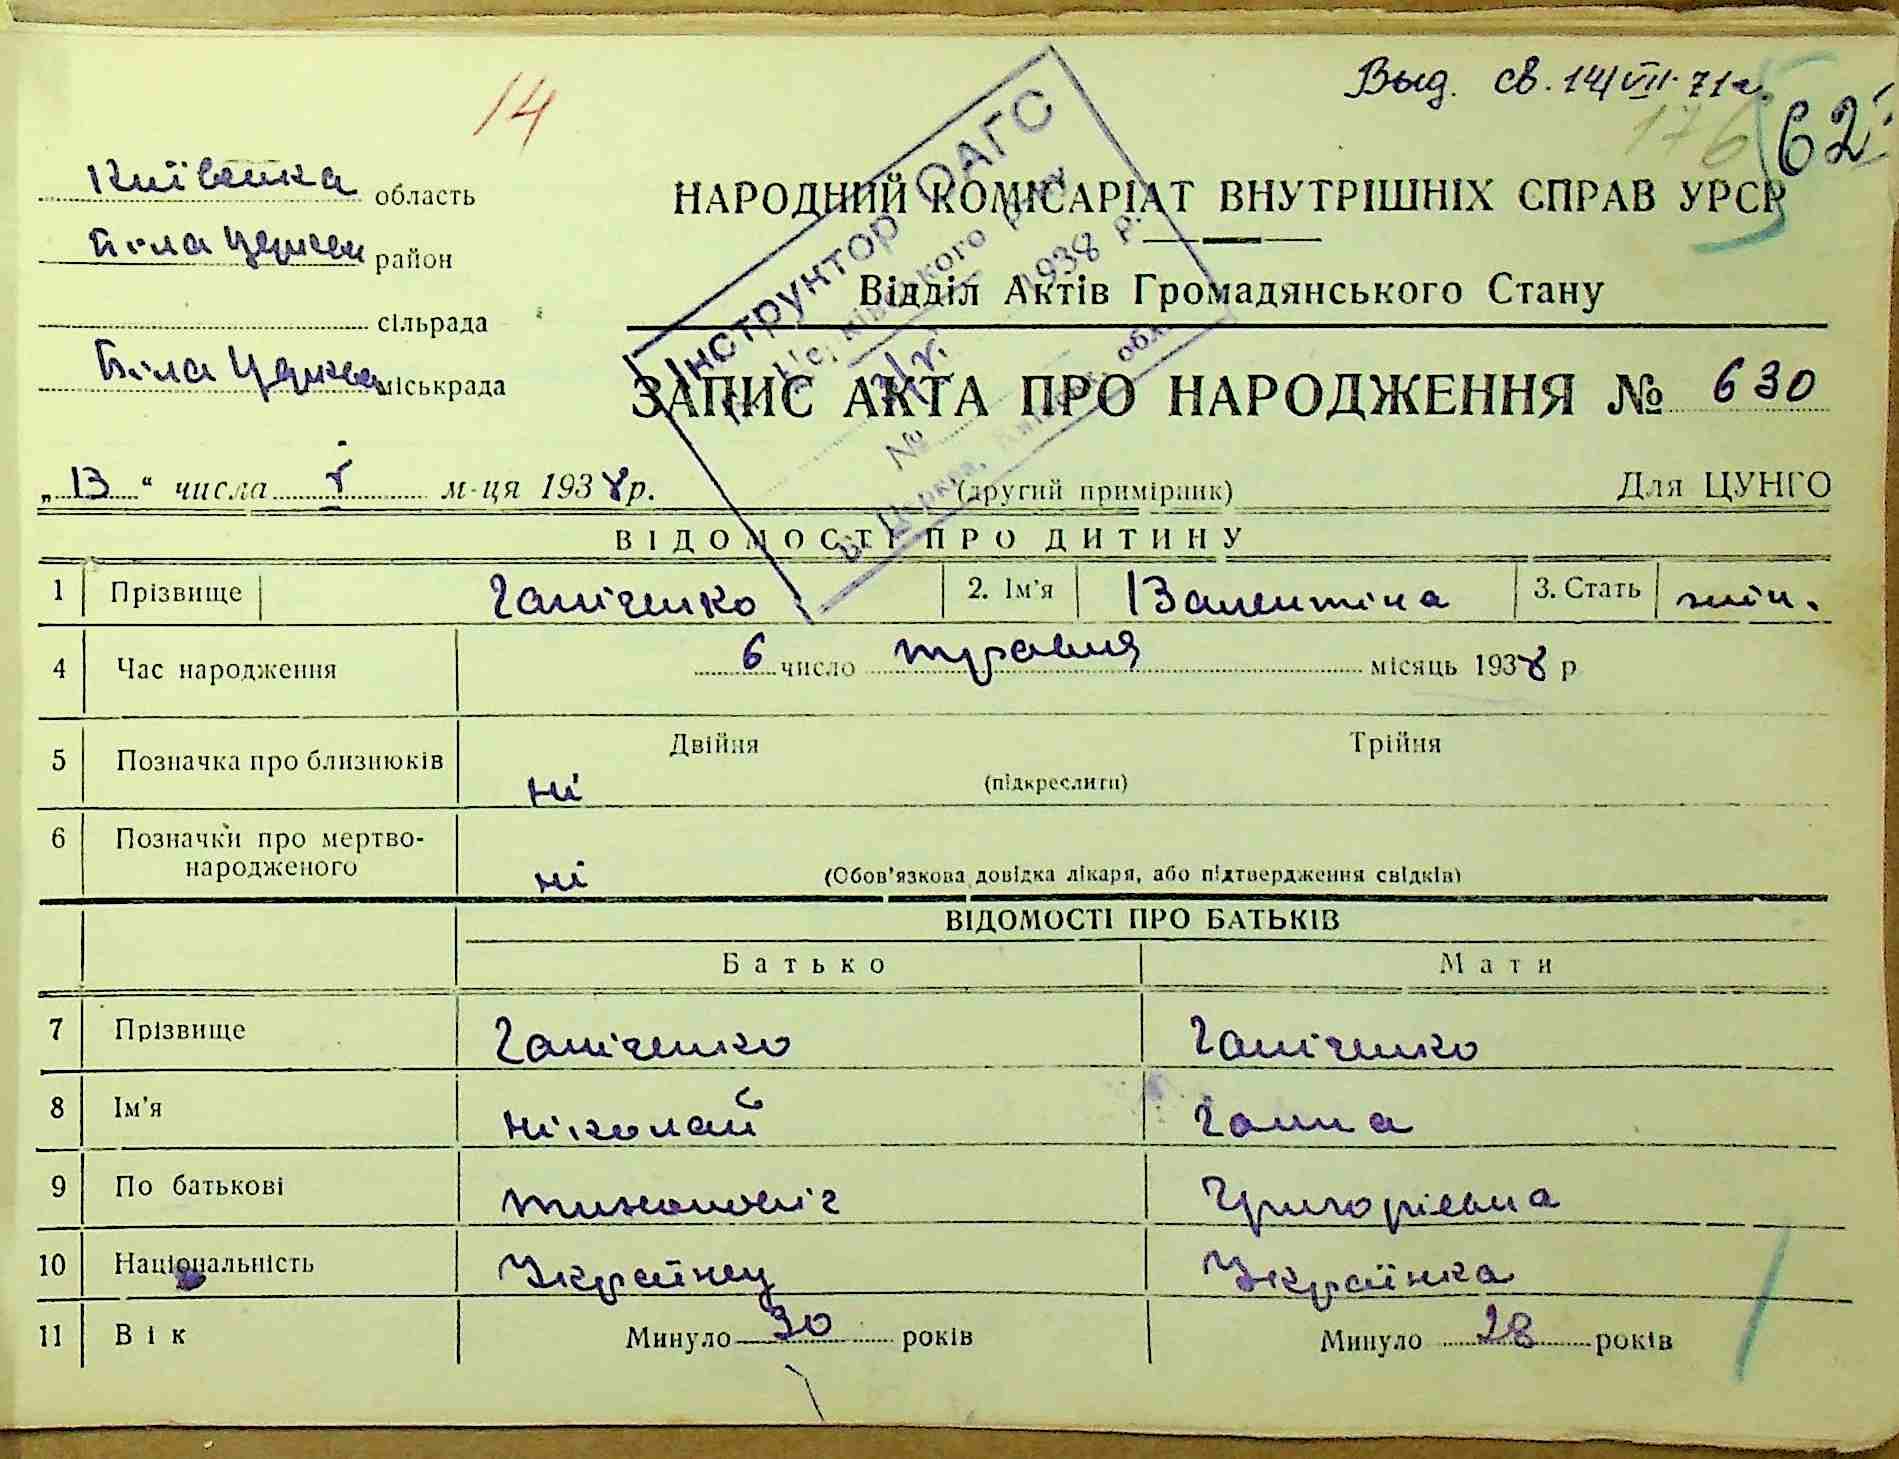 Выд. св. 14/VII-71г.
14
176
62
Київська область
Біла Церква район
сільрада
Біла Церква міськрада
НАРОДНИЙ КОМІСАРІАТ ВНУТРІШНІХ СПРАВ УРСР
Відділ Актів Громадянського Стану
ЗАПИС АКТА ПРО НАРОДЖЕННЯ № 630
Інструктор ОАГС
1938 р.
№
„13“ числа V м-ця 1938 р.
(другий примірник)
Для ЦУНГО
ВІДОМОСТІ ПРО ДИТИНУ
1 Прізвище Ганіченко 2. Ім'я Валентіна 3. Стать жін.
4 Час народження 6 число травня місяць 1938 р
5 Позначка про близнюків ні Двійня Трійня
(підкреслити)
6 Позначки про мертво-
народженого ні (Обов'язкова довідка лікаря, або підтвердження свідків)
ВІДОМОСТІ ПРО БАТЬКІВ
Батько Мати
7 Прізвище Ганіченко Ганіченко
8 Ім'я Ніколай Ганна
9 По батькові Тихоновіч Григорієвна
10 Національність Українец Українка
11 Вік Минуло 30 років Минуло 28 років